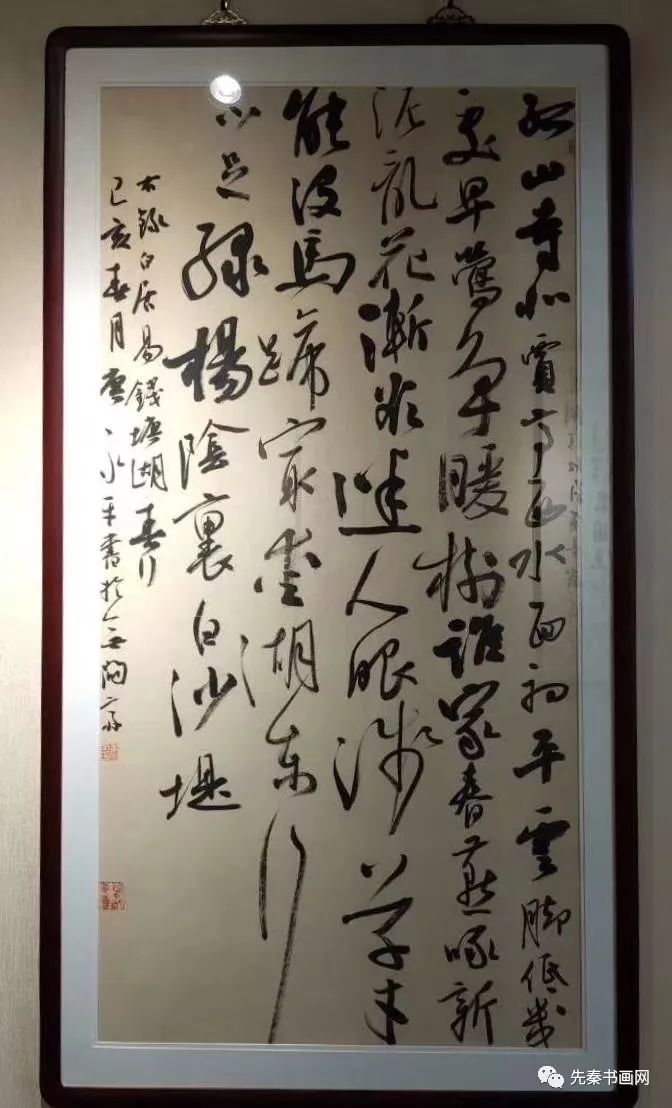 孤山寺北賈亭西水面初平雲脚低幾
處早鶯爭暖樹誰家春燕啄新
泥亂花漸欲迷人眼淺草才
能没馬蹄最愛湖東行
不足綠楊陰裏白沙堤
右録白居易錢塘湖春行
己亥春月永平書於
先秦书画网